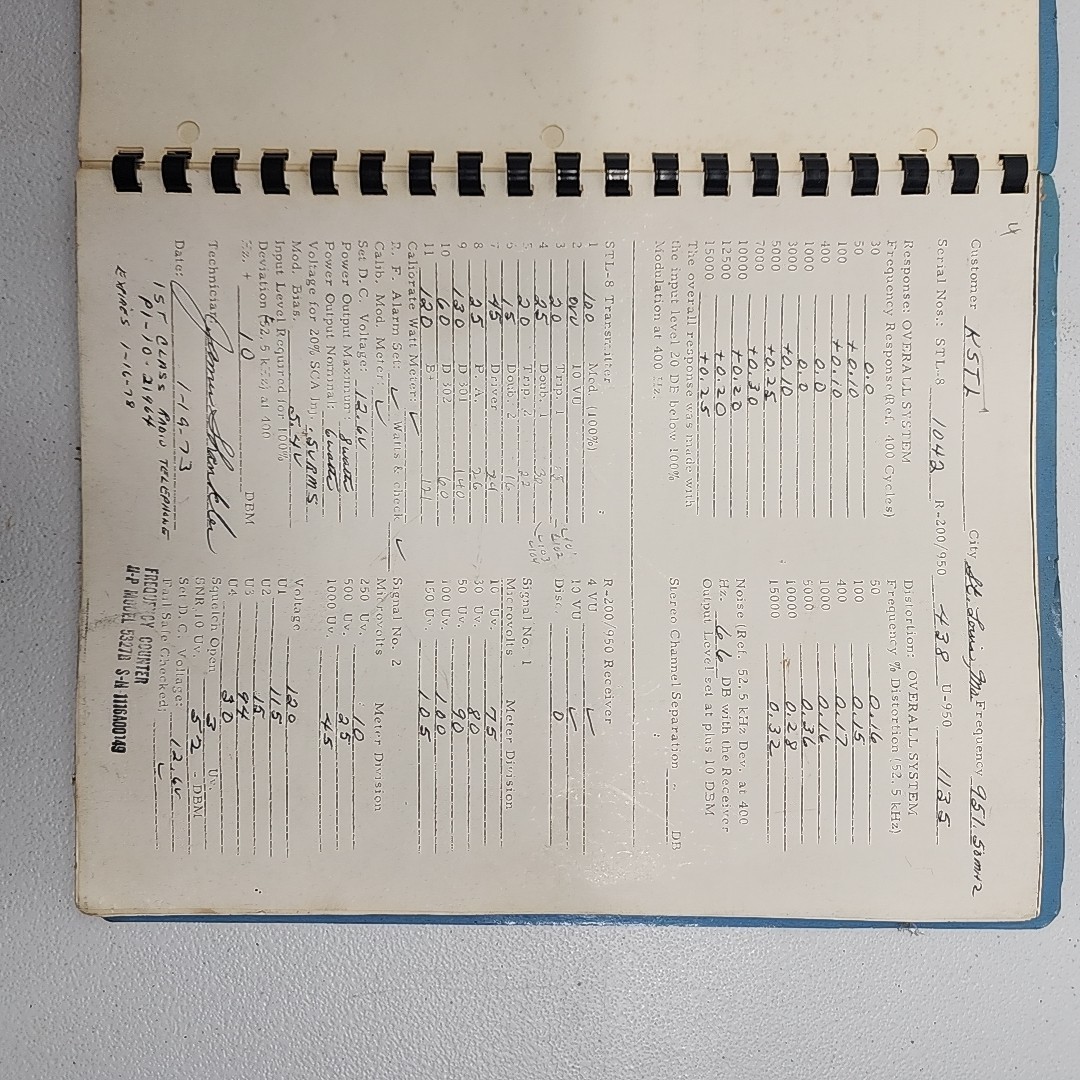 4
Customer KSTL City St. Louis, Mo. Frequency 951.50 MHz
Serial Nos.: STL-8 1042 R-200/950 438 U-950 1135
Response: OVERALL SYSTEM
Frequency Response (Ref. 400 Cycles)
30 0.0
50 +0.10
100 +0.10
400 0.0
1000 0.0
3000 +0.10
5000 +0.25
7000 +0.30
10000 +0.20
12500 +0.20
15000 +0.25
The overall response was made with
the input level 20 DB below 100%
Modulation at 400 Hz.
Distortion: OVERALL SYSTEM
Frequency % Distortion (52.5 kHz)
50 0.16
100 0.15
400 0.17
1000 0.16
5000 0.36
10000 0.28
15000 0.32
Noise (Ref. 52.5 kHz Dev. at 400
Hz. 66 DB with the Receiver
Output Level set at plus 10 DBM
Stereo Channel Separation - DB
STL-8 Transmitter :
1 100 Mod. (100%)
2 0VU 10 VU
3 20 Trip. 1 15 - L101 L102
4 25 Doub. 1 30 L103 L104
5 20 Trip. 2 22
6 15 Doub. 2 16
7 45 Driver 74
8 25 P.A. 26
9 130 D 301 140
10 60 D 302 60
11 120 B+ 121
Calibrate Watt Meter: ✓
R. F. Alarm Set: ✓ Watts & check ✓
Calib. Mod. Meter: ✓
Set D.C. Voltage: 12.6V
Power Output Maximum: 8 watts
Power Output Nominal: 6 watts
Voltage for 20% SCA Inj. .5VRMS
Mod. Bias. 5.4V
Input Level Required for 100%
Deviation (52.5 kHz) at 400
Hz. + 10 DBM
Technician
Date: 1-19-73
1ST CLASS RADIO TELEPHONE
P1-10-21964
EXPIRES 1-16-78
R-200/950 Receiver :
4 VU ✓
10 VU ✓
Disc. 0
Signal No. 1
Microvolts Meter Division
10 Uv. 75
30 Uv. 80
50 Uv. 90
100 Uv. 100
150 Uv. 105
Signal No. 2
Microvolts Meter Division
250 Uv. 10
500 Uv. 25
1000 Uv. 45
Voltage
U1 120
U2 115
U3 15
U4 94
30
Squelch Open 3 Uv.
SNR 10 Uv. 52 - DBM
Set D.C. Voltage: 12.6V
Fail Safe Checked: ✓
FREQUENCY COUNTER
H-P MODEL 5327B S-N 1116A00149